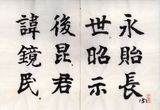 永貽長
世昭示
後昆君
諱鏡民